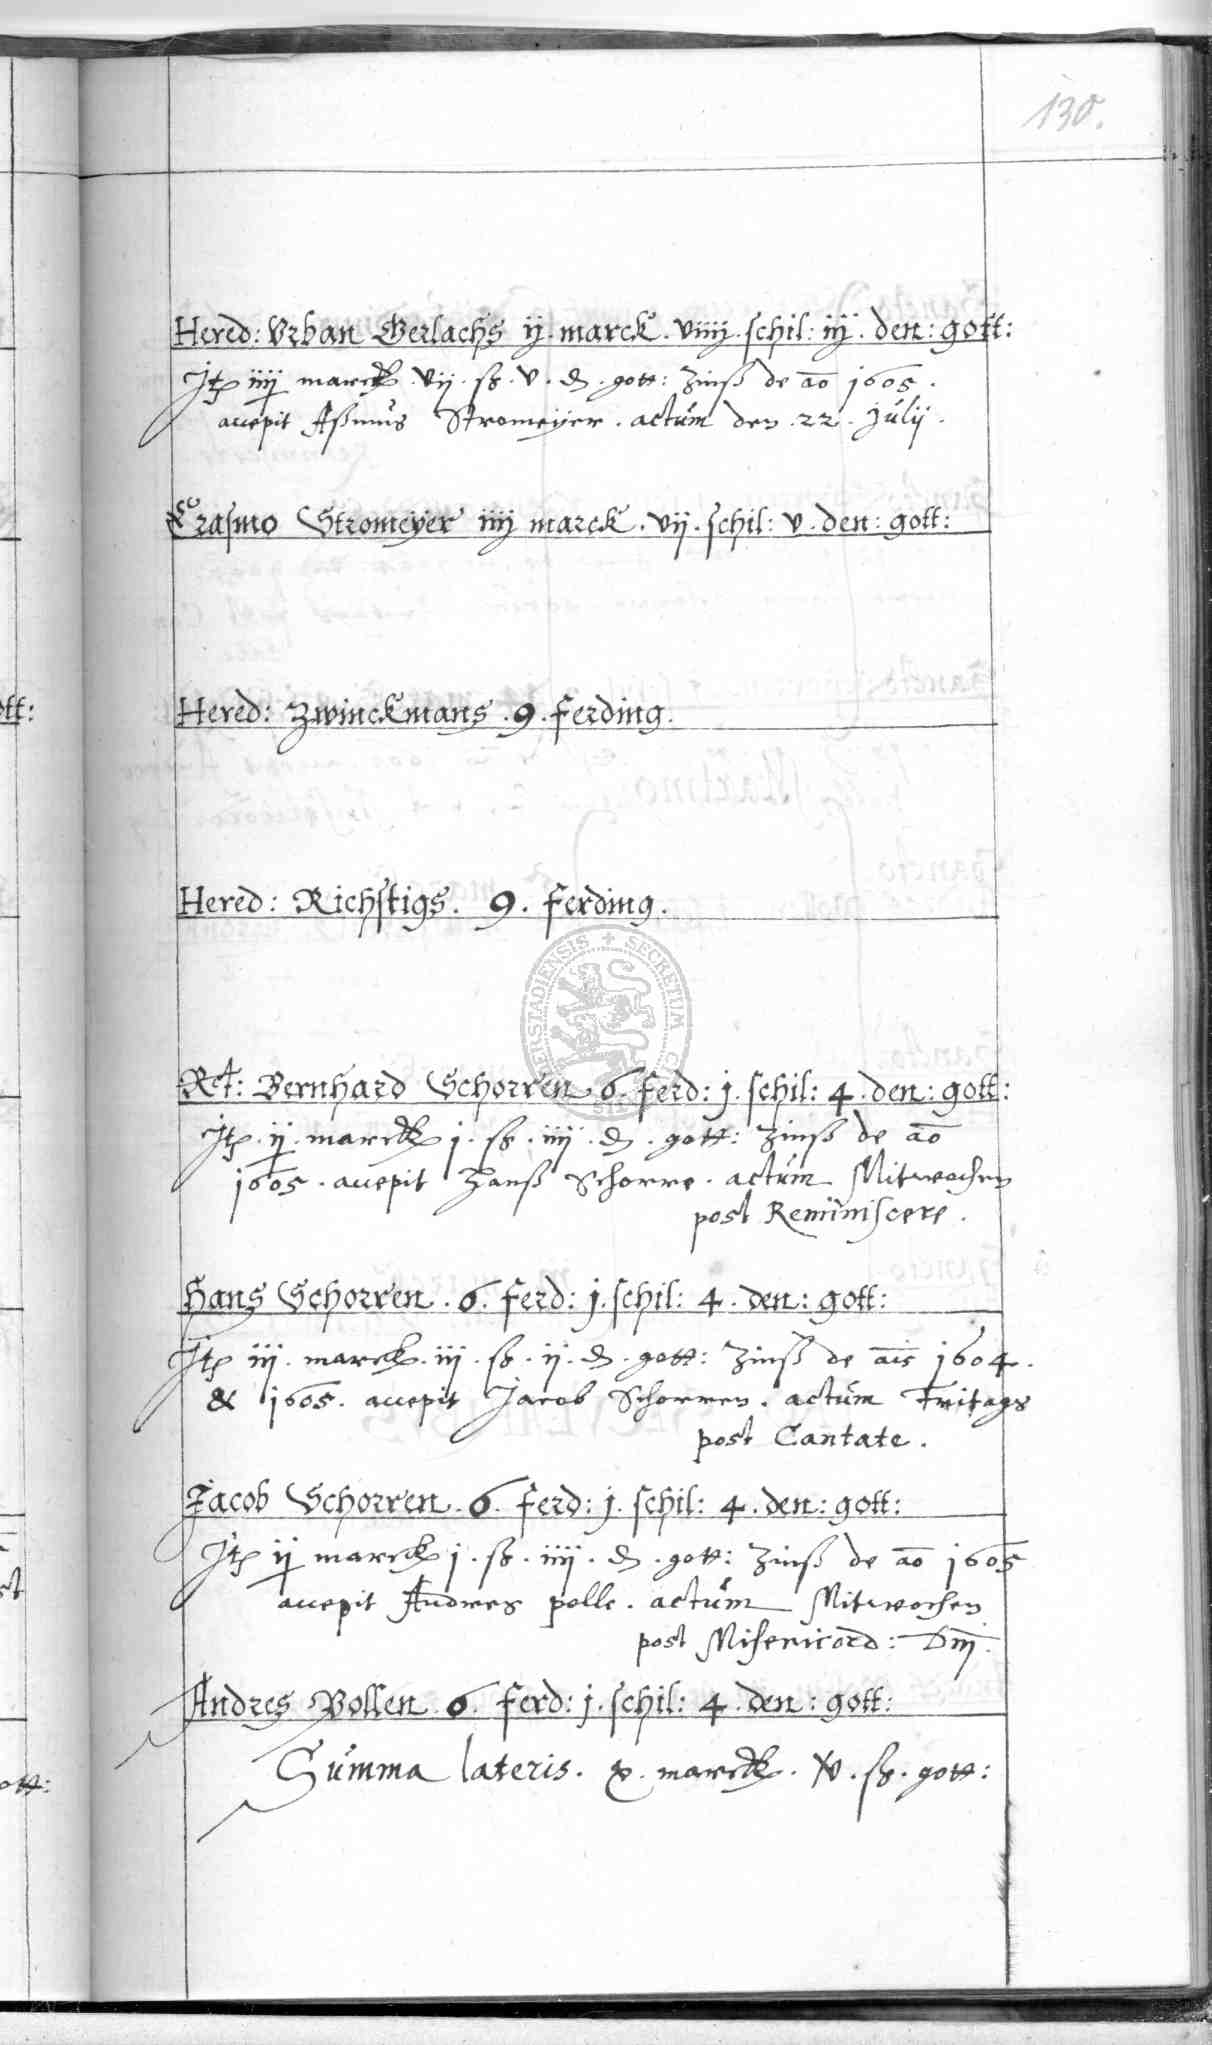 130.
Hered: Vrban Gerlachs ij. marck. viiij. schil: iij. den: gott:
Jt iiij marck. vij. sß. v. d. gott: Zinß de ao 1605.
accepit Aßmus Stromeyer. actum den. 22. Julij.
Erasmo Stromeyer iiij marck. vij. schil: v. den: gott:
Hered: Zwinckmans. 9. ferding.
Hered: Richstigs. 9. ferding.
SECRETUM
Rct: Bernhard Schorren 6. ferd: j. schil: 4. den: gott:
Jt. ij. marck j. sß. iiij. d. gott: Zinß de ao
1605. accepit Hanß Schorre. actum Mitwochen
post Reminiscere.
Hans Schorren. 6. ferd: j. schil: 4. den: gott:
Jt iij. marck. iij. sß. ij. d. gott: Zinß de ais 1604.
& 1605. accepit Jacob Schorren. actum Freitags
post Cantate.
Jacob Schorren. 6. ferd: j. schil: 4. den: gott:
Jt ij marck j. sß. iiij. d. gott: Zinß de ao 1605
accepit Andres polle. actum Mitwochen
post Misericord: Dnj.
Andres Pollen. 6. ferd: j. schil: 4. den: gott:
Summa lateris. x. marck. xv. sß. gott: